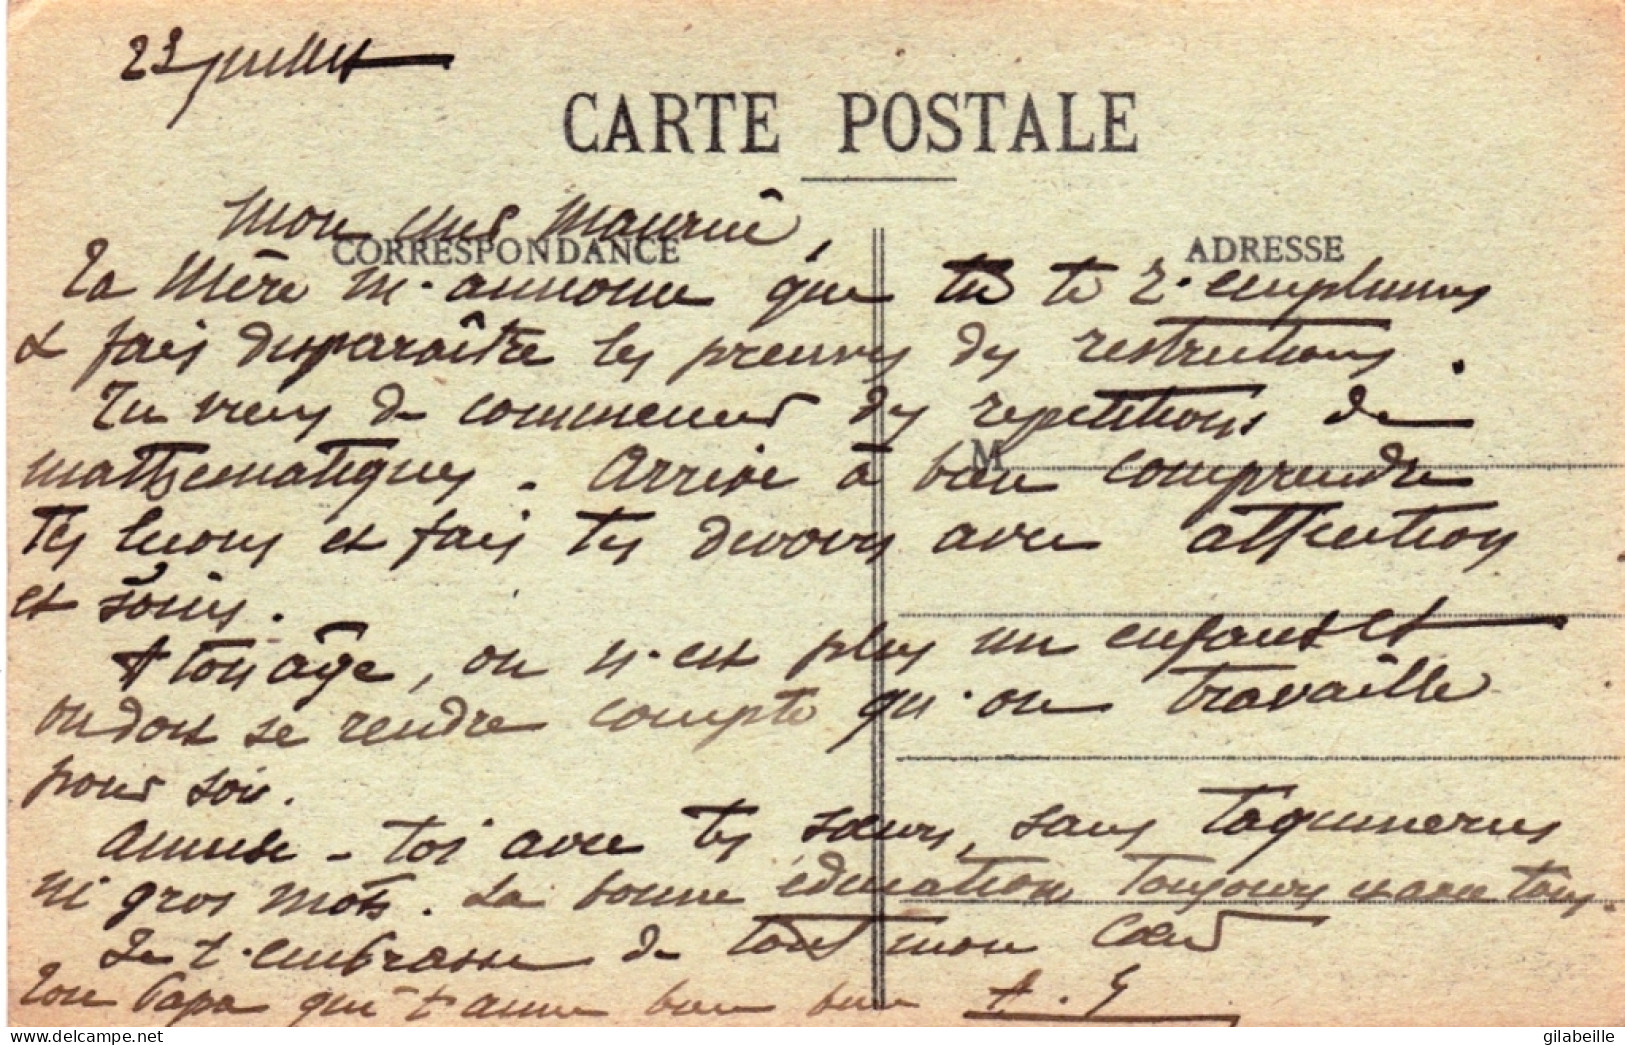 23 juillet
CARTE POSTALE
Mon cher Maurice,
CORRESPONDANCE
ADRESSE
Ta Mère m'annonce que tu te r'emplumes
& fais disparaître les preuves des restrictions.
Tu viens de commencer des répétitions de
M
mathématiques - Arrive à bien comprendre
tes leçons et fais tes devoirs avec attention
et soins.
A ton âge, on n'est plus un enfant et
on doit se rendre compte qu'on travaille
pour soi.
Amuse-toi avec tes sœurs, sans taquineries
ni gros mots. La bonne éducation toujours et avec tous.
Je t'embrasse de tout mon cœur
Ton Papa qui t'aime bien bien A. G
www.delcampe.net
gilabeille